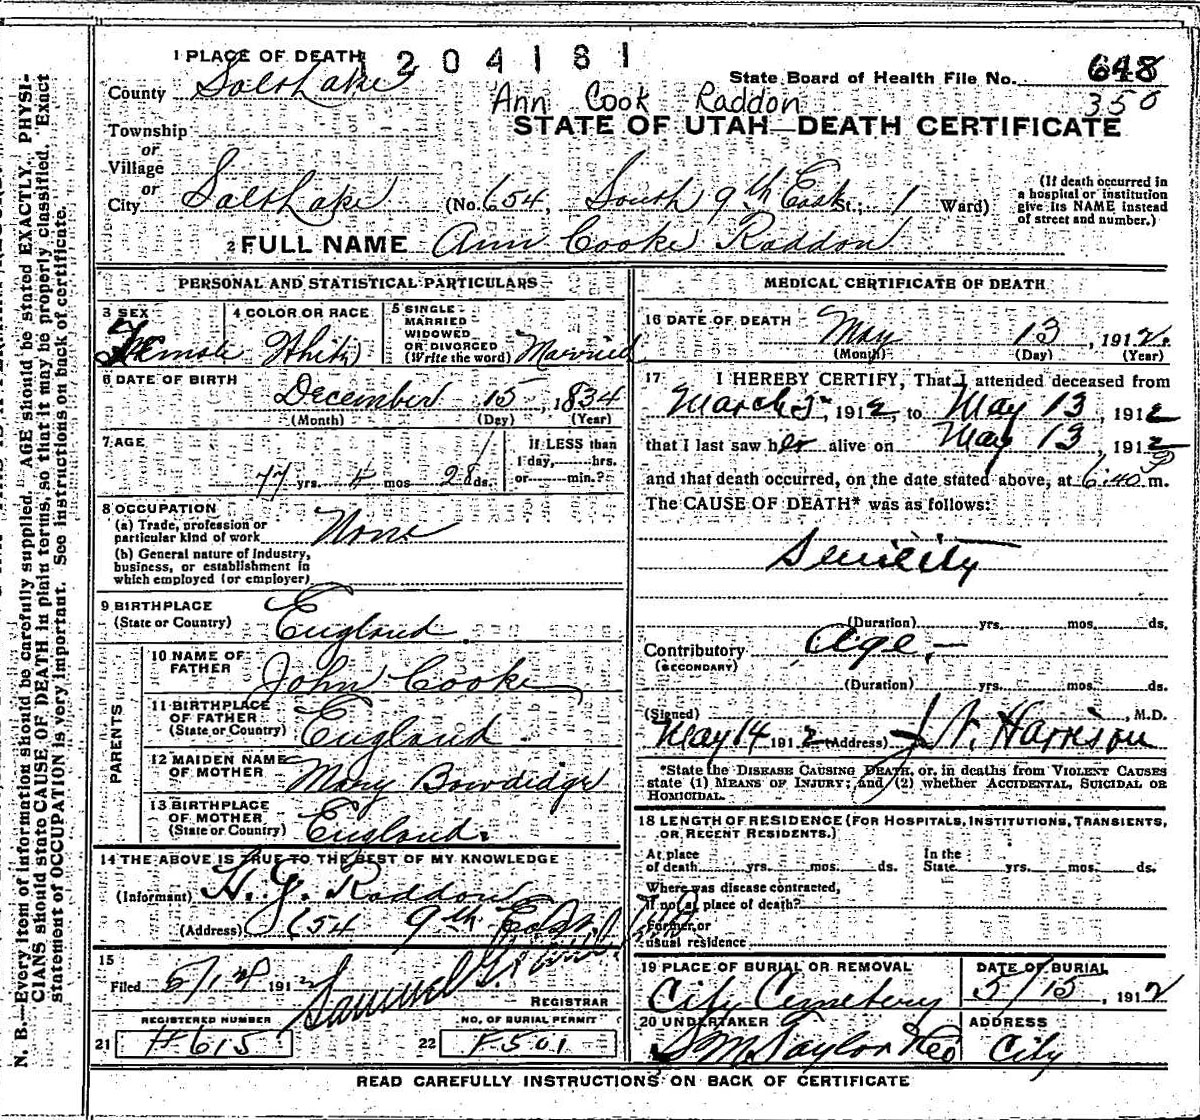 1 PLACE OF DEATH 1 2 0 4 1 8 1
State Board of Health File No. 648
County Salt Lake
Ann Cook Raddon 350
STATE OF UTAH—DEATH CERTIFICATE
Township
or
Village
or
City Salt Lake (No. 654, South 9th East St.; 1 Ward)
(If death occurred in
a hospital or institution
give its NAME instead
of street and number.)
2 FULL NAME Ann Cooke Raddon
PERSONAL AND STATISTICAL PARTICULARS
3 SEX Female
4 COLOR OR RACE White
5 SINGLE
MARRIED
WIDOWED
OR DIVORCED
(Write the word) Married
6 DATE OF BIRTH
December 15, 1834
(Month) (Day) (Year)
7 AGE
77 yrs. 4 mos 28 ds.
If LESS than
1 day, hrs.
or min.?
8 OCCUPATION
(a) Trade, profession or
particular kind of work None
(b) General nature of Industry,
business, or establishment in
which employed (or employer)
9 BIRTHPLACE
(State or Country) England
PARENTS
10 NAME OF
FATHER John Cooke
11 BIRTHPLACE
OF FATHER
(State or Country) England
12 MAIDEN NAME
OF MOTHER Mary Bowdidge
13 BIRTHPLACE
OF MOTHER
(State or Country) England.
14 THE ABOVE IS TRUE TO THE BEST OF MY KNOWLEDGE
(Informant) H. G. Raddon
(Address) 654 9th East
15
Filed 5/ 1912 Samuel G.
REGISTRAR
REGISTERED NUMBER
21 H615
NO. OF BURIAL PERMIT
22 F501
MEDICAL CERTIFICATE OF DEATH
16 DATE OF DEATH
May 13, 1912.
(Month) (Day) (Year)
17 I HEREBY CERTIFY, That I attended deceased from
March 5, 1912 to May 13, 1912
that I last saw her alive on May 13, 1912
and that death occurred, on the date stated above, at 6:40 P m.
The CAUSE OF DEATH* was as follows:
Senility
(Duration) yrs. mos. ds.
Contributory Age.—
(SECONDARY)
(Duration) yrs. mos. ds.
(Signed) , M.D.
May 14 1912 (Address) Harrison
*State the DISEASE CAUSING DEATH, or, in deaths from VIOLENT CAUSES
state (1) MEANS OF INJURY; and (2) whether ACCIDENTAL, SUICIDAL OR
HOMICIDAL.
18 LENGTH OF RESIDENCE (FOR HOSPITALS, INSTITUTIONS, TRANSIENTS,
OR RECENT RESIDENTS.)
At place
of death yrs. mos. ds.
In the
State yrs. mos. ds.
Where was disease contracted,
if not at place of death?
Former or
usual residence
19 PLACE OF BURIAL OR REMOVAL
City Cemetery
DATE OF BURIAL
5/15, 1912
20 UNDERTAKER
S. M. Taylor &Co
ADDRESS
City
READ CAREFULLY INSTRUCTIONS ON BACK OF CERTIFICATE
N. B.—Every item of information should be carefully supplied. AGE should be stated EXACTLY. PHYSI-
CIANS should state CAUSE OF DEATH in plain terms, so that it may be properly classified. "Exact
statement of OCCUPATION is very important. See instructions on back of certificate.